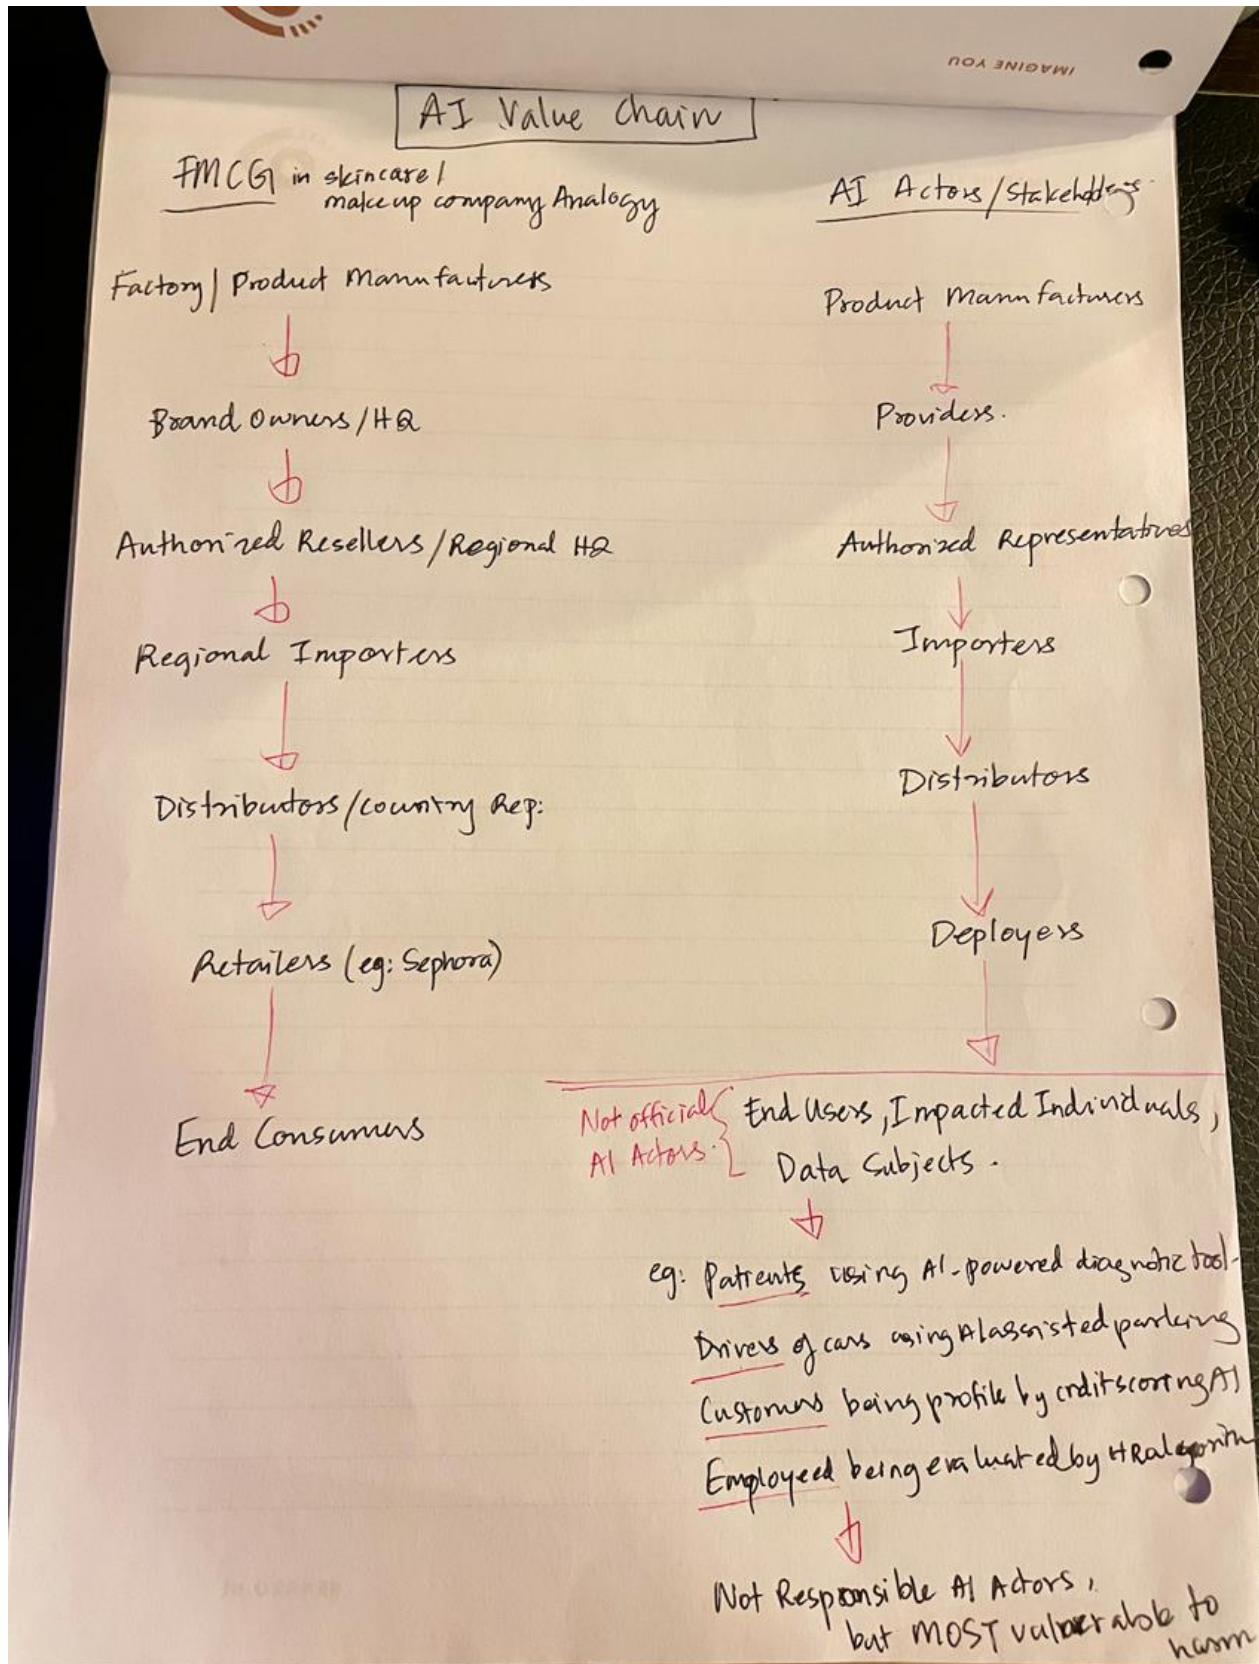 IMAGINE YOU
AI Value Chain
FMCG in skincare/
makeup company Analogy
Factory/Product Manufacturers
Brand Owners/HQ
Authorized Resellers/Regional HQ
Regional Importers
Distributors/Country Rep:
Retailers (eg: Sephora)
End Consumers
AI Actors/Stakeholders
Product Manufacturers
Providers.
Authorized Representatives
Importers
Distributors
Deployers
Not official
AI Actors.
End Users, Impacted Individuals,
Data Subjects.
eg: Patients using AI-powered diagnotic tool
Drivers of cars using AI assisted parking
Customers being profile by crditscoring AI
Employeed being evaluated by HR algorithm
Not Responsible AI Actors,
but MOST vulnerable to
harm